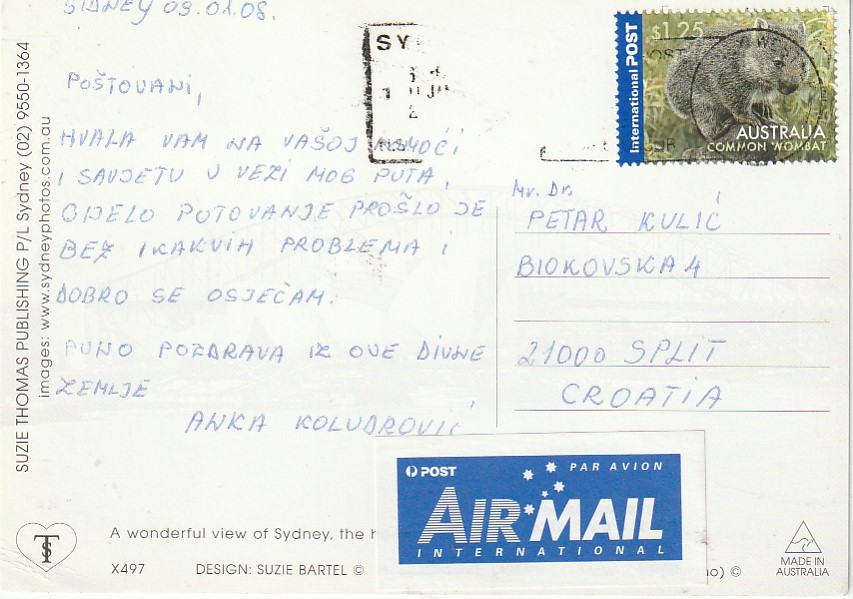 SIDNEY 09.01.08.
POŠTOVANI,
HVALA VAM NA VAŠOJ POMOĆI
I SAVJETU U VEZI MOG PUTA,
CIJELO PUTOVANJE PROŠLO JE
BEZ IKAKVIH PROBLEMA I
DOBRO SE OSJEĆAM.
PUNO POZDRAVA IZ OVE DIVNE
ZEMLJE
ANKA KOLUDROVIĆ
SY
International POST
$1.25
AUSTRALIA
COMMON WOMBAT
Mr. Dr.
PETAR KULIĆ
BIOKOVSKA 4
21000 SPLIT
CROATIA
POST
PAR AVION
AIR MAIL
INTERNATIONAL
SUZIE THOMAS PUBLISHING P/L Sydney (02) 9550-1364
images: www.sydneyphotos.com.au
TS
A wonderful view of Sydney, the h
X497
DESIGN: SUZIE BARTEL ©
no) ©
MADE IN
AUSTRALIA